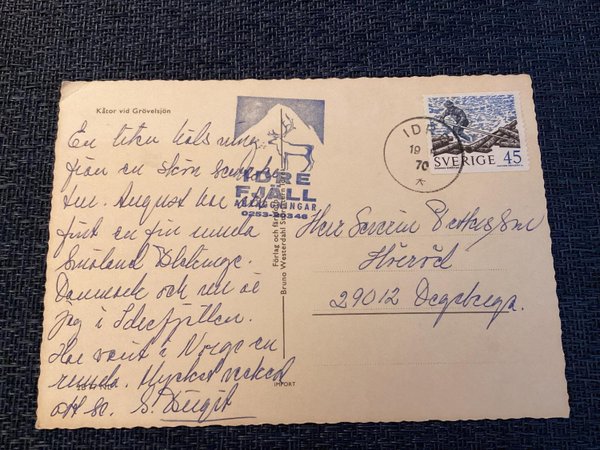 Kåtor vid Grövelsjön
En liten hälsning
från en skön semes
ter. Augusti har
fint en fin runda
Småland Blekinge.
Danmark och nu är
jag i Idrefjällen.
Har varit i Norge en
runda. Mycket vackert
att se. S. Birgit
IDRE
FJÄLL
ANLÄGGNINGAR
0253-20346
Förlag och
Bruno Westerdahl
IMPORT
IDRE
19
70
SVERIGE 45
Herr Severin Pettersson
Höeröd
29012 Degeberga.